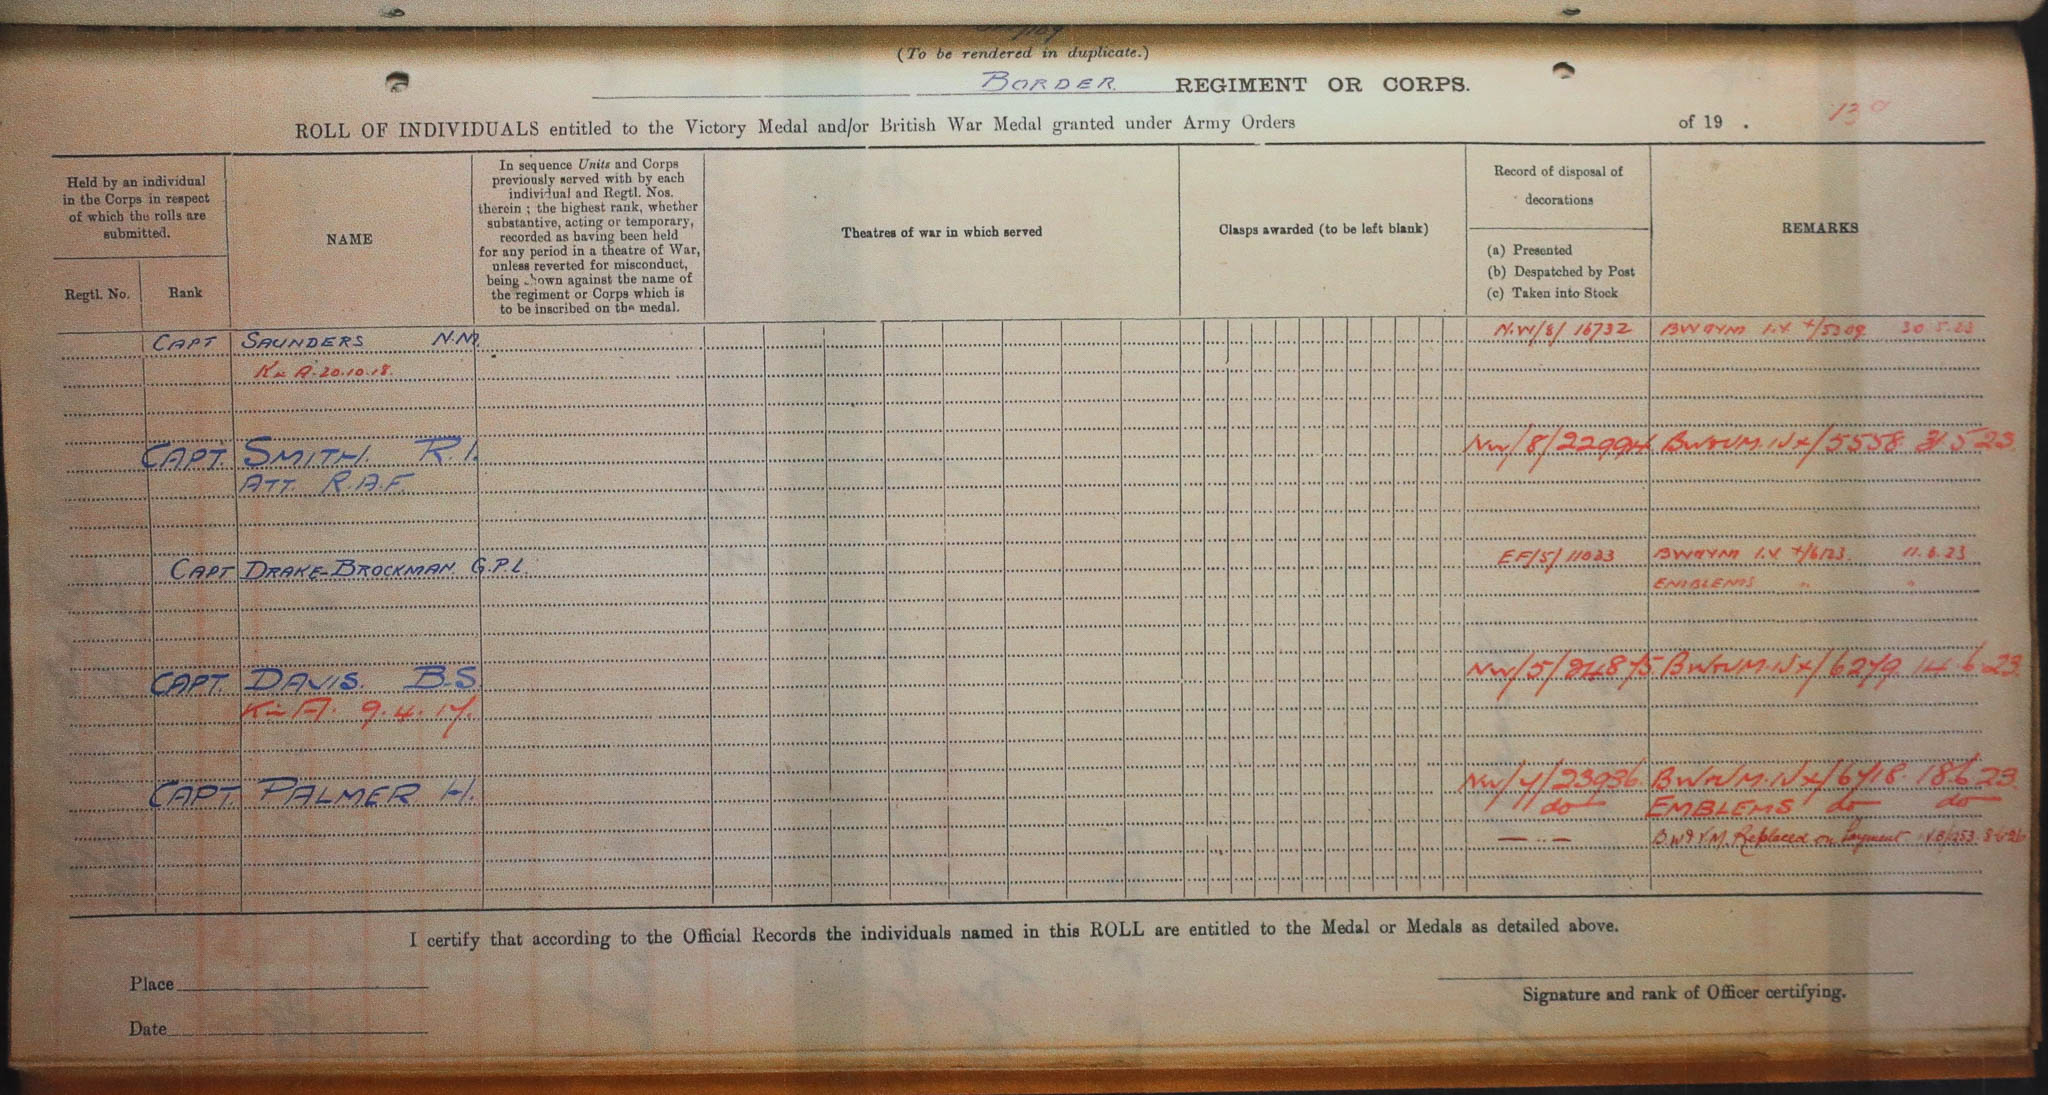 (To be rendered in duplicate.)
BORDER REGIMENT OR CORPS.
ROLL OF INDIVIDUALS entitled to the Victory Medal and/or British War Medal granted under Army Orders of 19 . 13
Held by an individual
in the Corps in respect
of which the rolls are
submitted.
Regtl. No. Rank
NAME
In sequence Units and Corps
previously served with by each
individual and Regtl. Nos.
therein ; the highest rank, whether
substantive, acting or temporary,
recorded as having been held
for any period in a theatre of War,
unless reverted for misconduct,
being shown against the name of
the regiment or Corps which is
to be inscribed on the medal.
Theatres of war in which served
Clasps awarded (to be left blank)
Record of disposal of
decorations
(a) Presented
(b) Despatched by Post
(c) Taken into Stock
REMARKS
CAPT SAUNDERS N.M. N.W/8/16732 BW&VM I.V X/5309 30.5.23
K in A. 20.10.18.
CAPT. SMITH. R.I. NW/8/22994 BW&VM. IV X/5558 31 5 23
ATT. R.A.F.
CAPT DRAKE-BROCKMAN G.P.L. EF/5/11023 BW&VM I.V X/6123. 11.6.23
EMBLEMS " "
CAPT. DAVIS. B.S. NW/5/24875. BW&VM. IV X/6279. 14.6.23
K in A. 9.4.17.
CAPT. PALMER H. NW/7/23936. BW&VM. IV X/6718. 18.6.23.
do EMBLEMS do do
— " — BW&VM. Replaced on Payment V.B/253. 8.6.26
I certify that according to the Official Records the individuals named in this ROLL are entitled to the Medal or Medals as detailed above.
Place
Signature and rank of Officer certifying.
Date